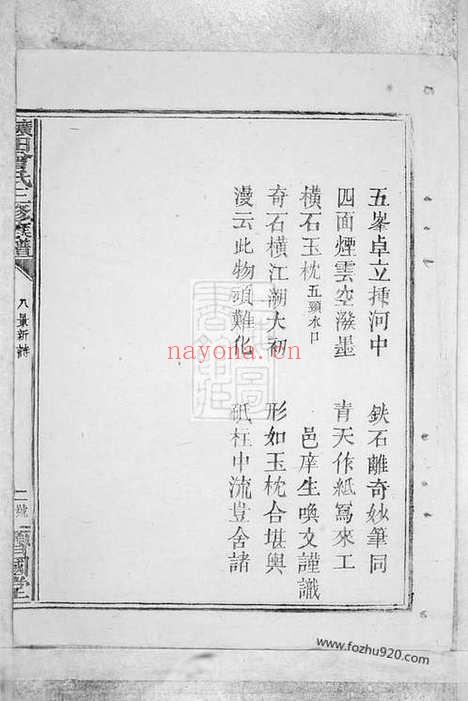 五峯卓立揷河中 鉄石離奇妙筆同
四面煙雲空潑墨 青天作紙寫來工
橫石玉枕 五頸水口 邑庠生喚文謹識
奇石橫江溯大初 形如玉枕合堪輿
漫云此物頑難化 砥柱中流豈舍諸
氏三修族譜
八景新詩
二號
nayona.cn
www.fozhu920.com